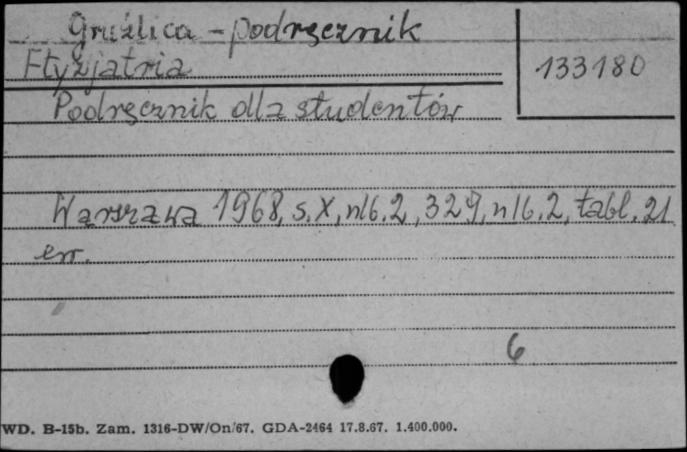 Gruźlica - podręcznik
Ftyzjatria
133180
Podręcznik dla studentów
Warszawa 1968, s. X, nlb. 2, 329, nlb. 2, tabl. 21
err.
6
WD. B-15b. Zam. 1316-DW/On/67. GDA-2464 17.8.67. 1.400.000.